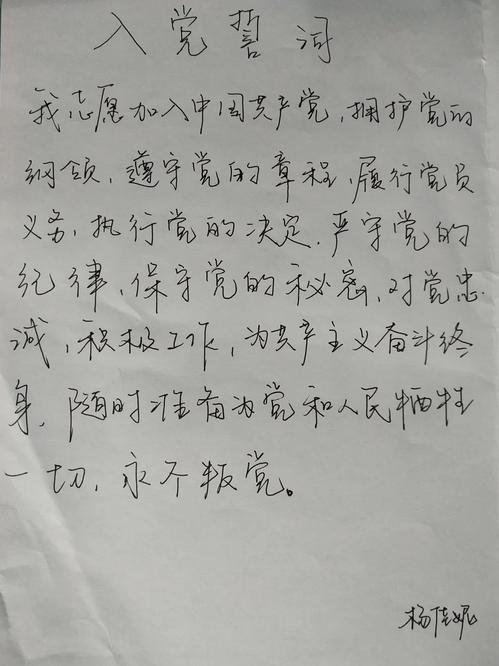 入党誓词
我志愿加入中国共产党，拥护党的
纲领，遵守党的章程，履行党员
义务，执行党的决定，严守党的
纪律，保守党的秘密，对党忠
诚，积极工作，为共产主义奋斗终
身，随时准备为党和人民牺牲
一切，永不叛党。
杨佳妮